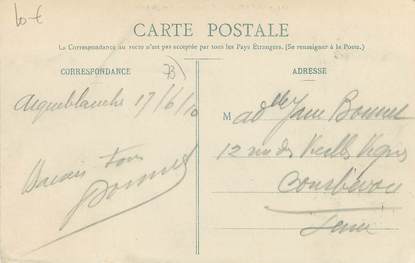 10 €
CARTE POSTALE
La Correspondance au recto n'est pas acceptée par tous les Pays Étrangers. (Se renseigner à la Poste.)
CORRESPONDANCE
73
ADRESSE
Aigueblanche 17/6/10
Baisers Tous
Bonnet
M adlle Jane Bonnet
12 rue des Vieilles Vignes
Courbevoie
Seine